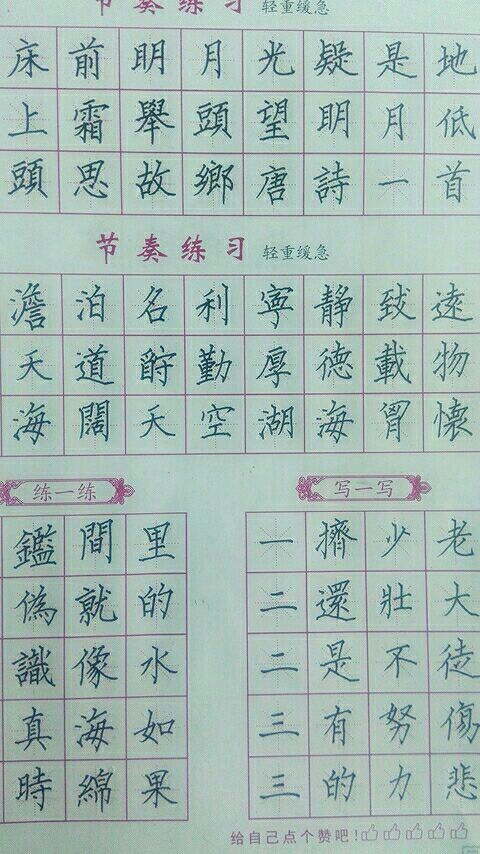 节奏练习 轻重缓急
床前明月光疑是地
上霜舉頭望明月低
頭思故鄉唐詩一首
节奏练习 轻重缓急
澹泊名利寧靜致遠
天道酬勤厚德載物
海闊天空湖海胷懷
练一练
鑑偽識真時
間就像海綿
里的水如果
写一写
一二二三三
擠還是有的
少壯不努力
老大徒傷悲
给自己点个赞吧!